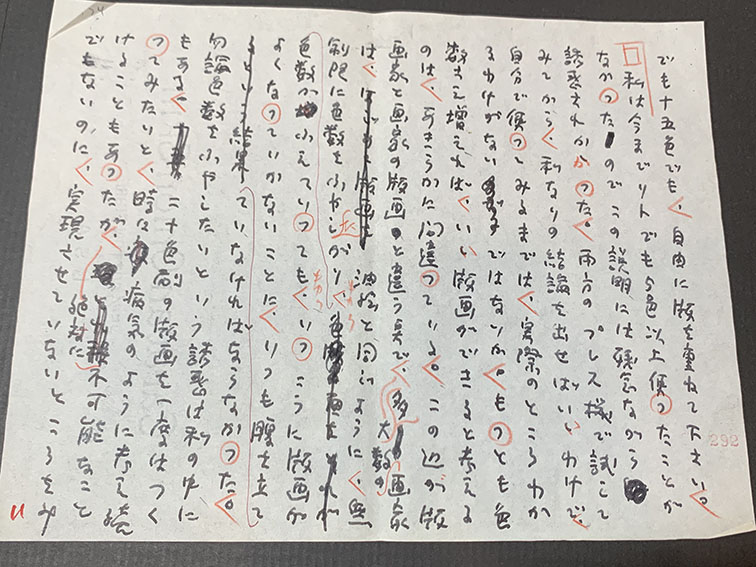 でも十五色でも、自由に版を重ねて下さい。
私は今までリトでも5色以上使ったことが
なかったのでこの説明には残念ながら
誘惑されかかった。両方のプレス機で試して
みてから、私なりの結論を出せばいいわけで、
自分で使ってみるまでは、実際のところわか
るわけがないではないか。もっとも色
数さえ増えれば、いい版画ができると考える
のは、あきらかに間違っている。この辺が版
画家と画家の版画のと違う点で、大多数の画家
は、油絵と同じように、無
制限に色数をふやしたがり、
色数がふえていっても、いっこうに版画が
よくなっていかないことに、いつも腹を立て
ていなければならなかった。
勿論色数をふやしたいという誘惑は私の中に
もある、二十色刷の版画を一度はつく
ってみたいと、時々病気のように考え続
けることもあったが、絶対に不可能なこと
でもないのに、実現させていないところをみ
292
11